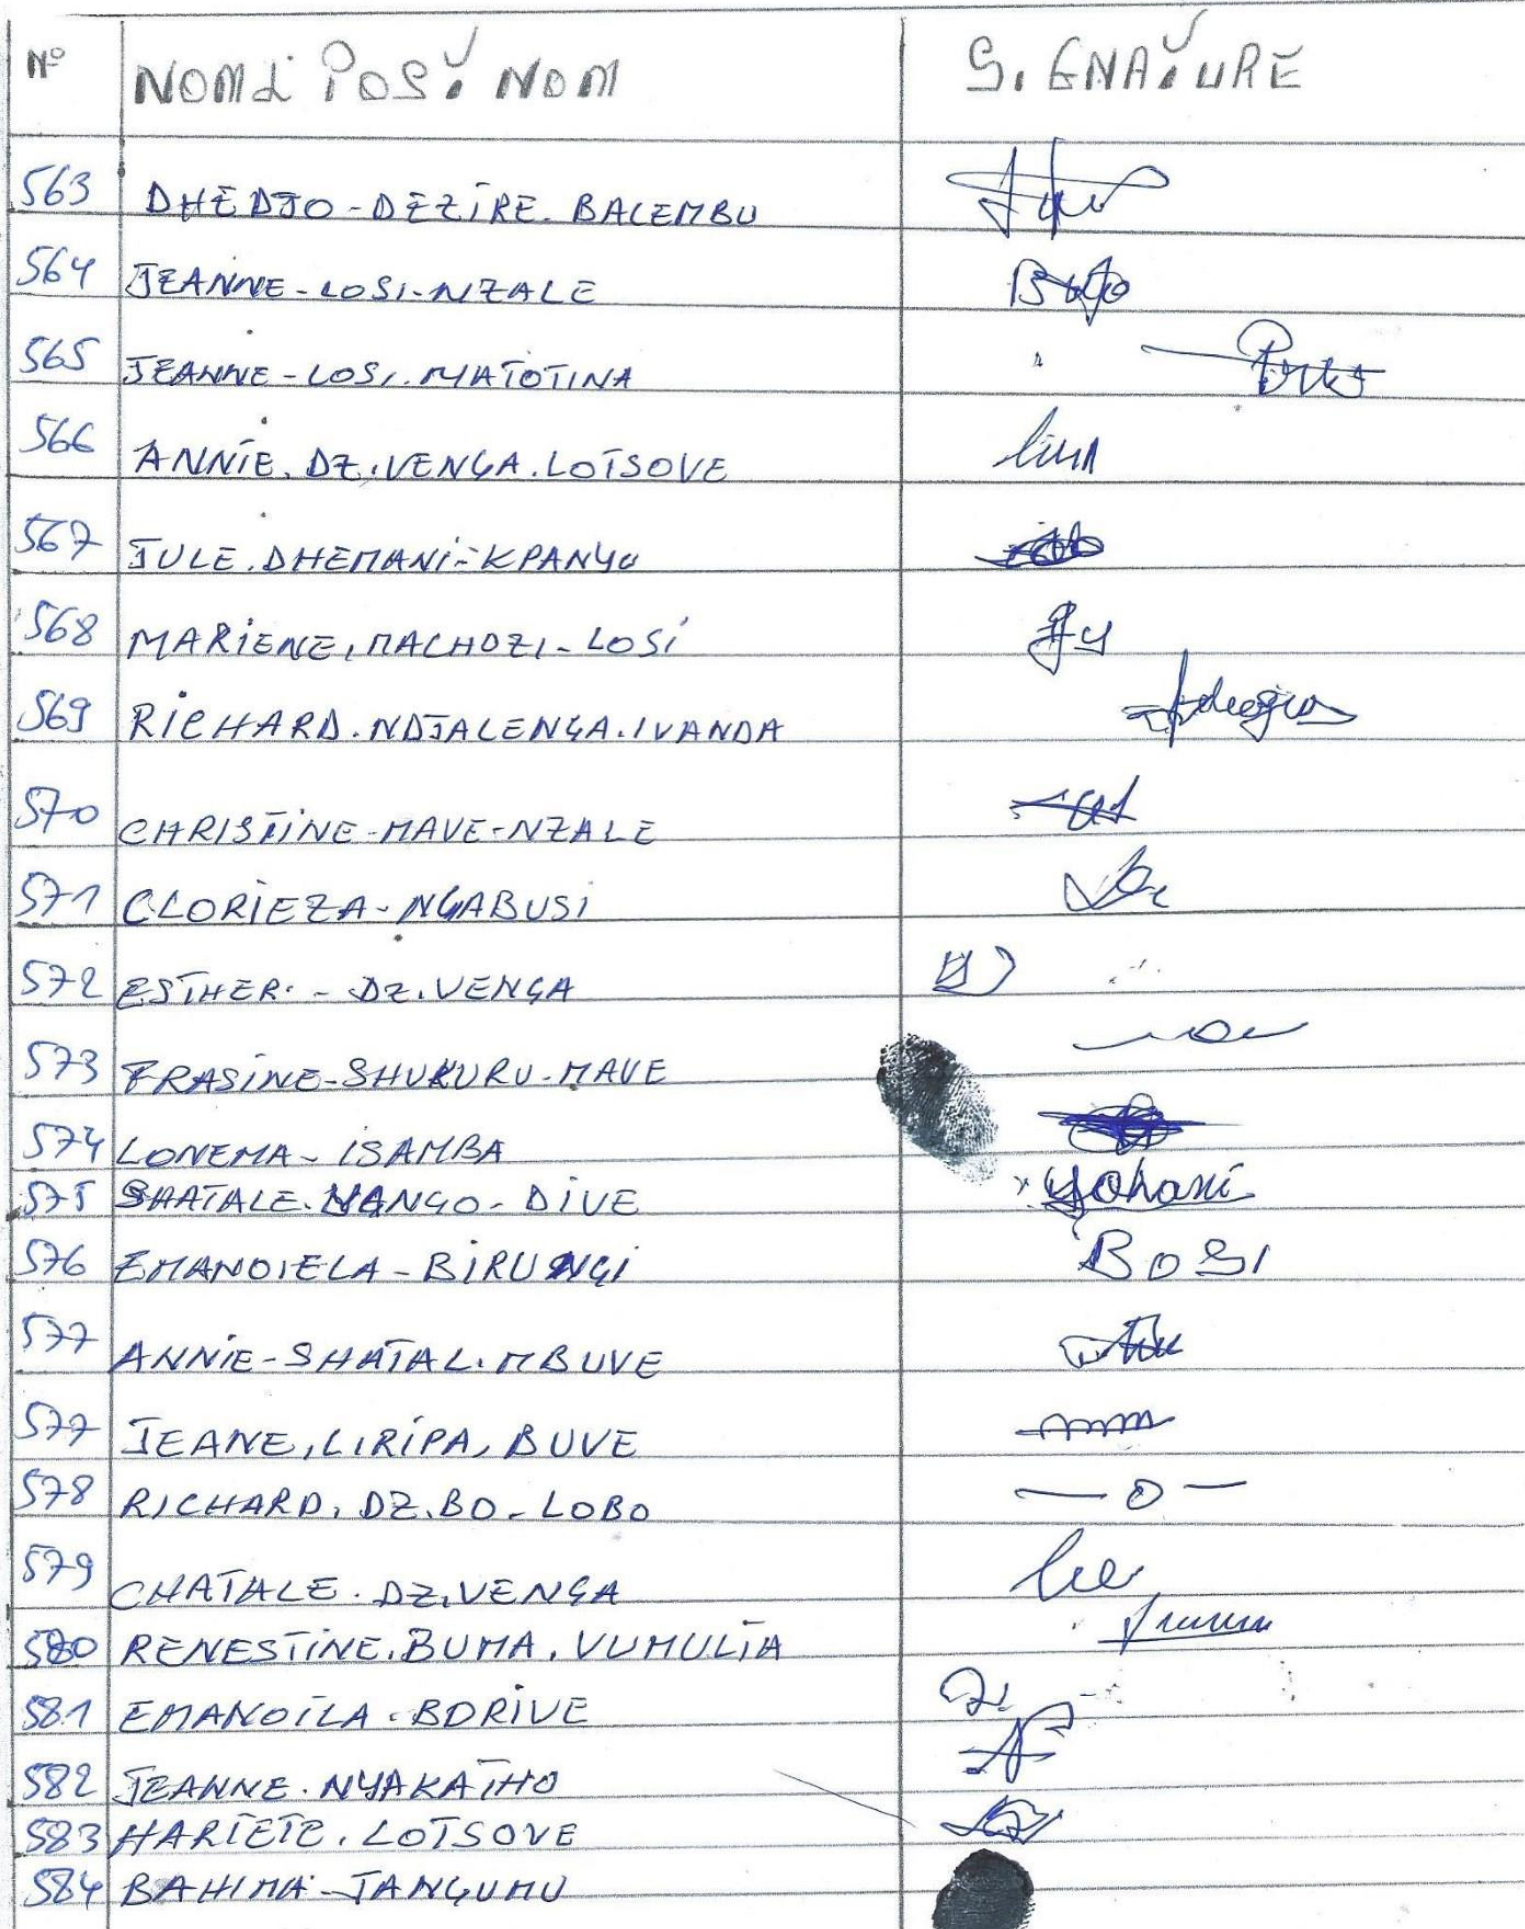 N° NOM & POST NOM SIGNATURE
563 DHEDJO-DEZIRE. BALEMBU
564 JEANNE-LOSI-NZALE
565 JEANNE-LOSI. MATOTINA
566 ANNIE. DZ.VENGA.LOTSOVE
567 JULE.DHEMANI-KPANYO
568 MARIENE, MACHOZI-LOSI
569 RICHARD.NDJALENGA.IVANDA
570 CHRISTINE-MAVE-NZALE
571 CLORIEZA-NGABUSI
572 ESTHER.-DZ.VENGA
573 FRASINE-SHUKURU-MAVE
574 LONEMA-ISAMBA
575 SHATALE.NANGO-DIVE Yohani
576 EMANOIELA-BIRUNGI BOSI
577 ANNIE-SHATAL.MBUVE
577 JEANE, LIRIPA, BUVE
578 RICHARD, DZ.BO-LOBO —0—
579 CHATALE. DZ.VENGA
580 RENESTINE.BUMA. VUMULIA
581 EMANOILA-BORIVE
582 JEANNE.NYAKATHO
583 HARIETE. LOTSOVE
584 BAHIMA-JANGUMU